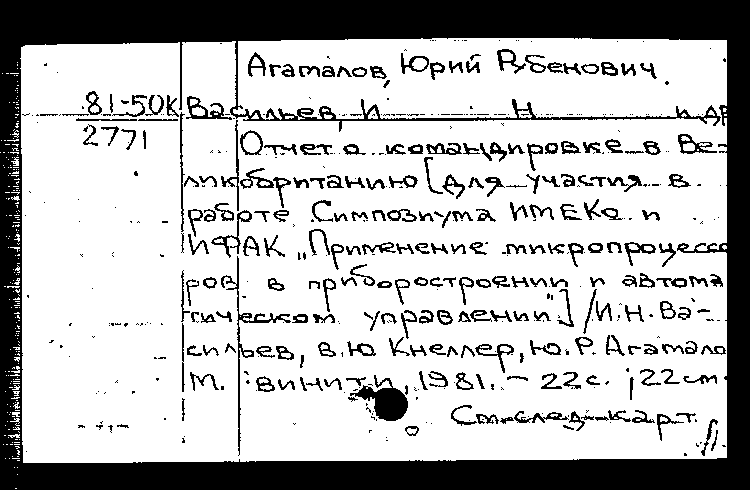 Агаталов, Юрий Рубенович.
81-50К Васильев, И Н и др
2771 Отчет о командировке в Ве-
ликобританию [для участия в
работе Симпозиума ИМЕКО и
ИФАК „Применение микропроцессо
ров в приборостроении и автома
тическом управлении"] / И.Н. Ва-
сильев, В.Ю. Кнеллер, Ю.Р. Агатало
М. : ВИНИТИ, 1981. - 22 с. ; 22 см.
См. след. карт.